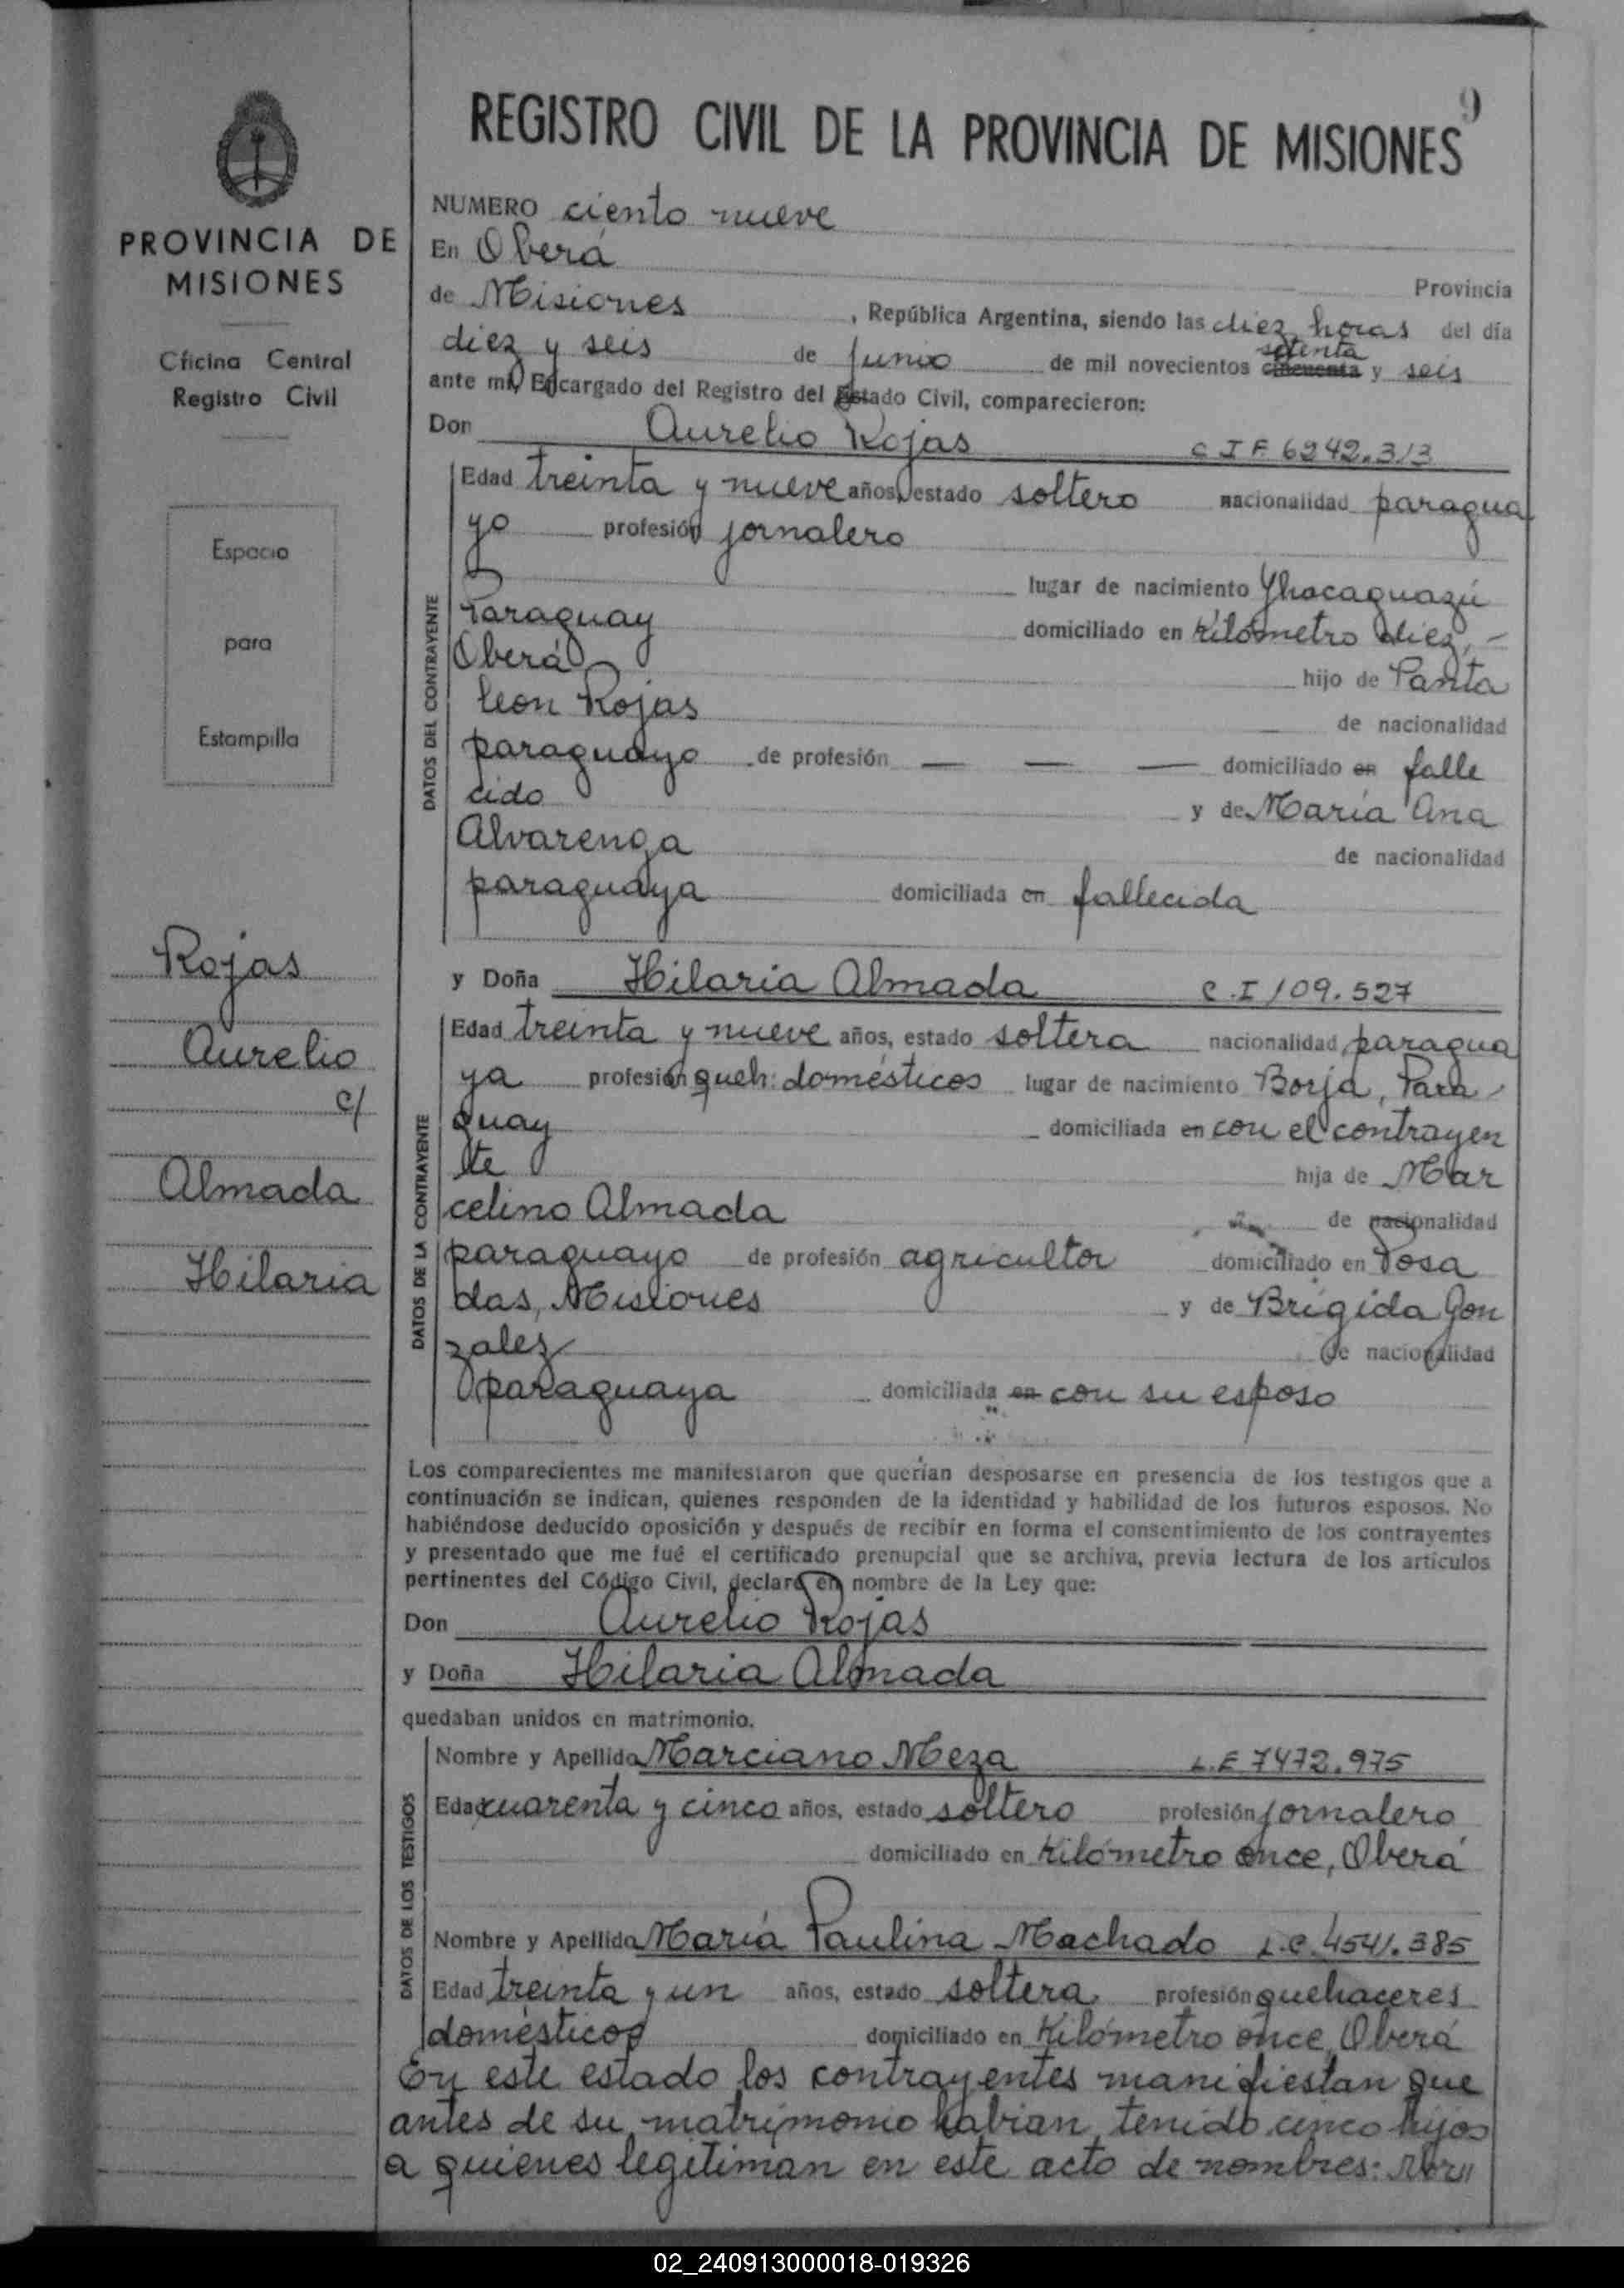 9
REGISTRO CIVIL DE LA PROVINCIA DE MISIONES
PROVINCIA DE
MISIONES
Oficina Central
Registro Civil
Espacio
para
Estampilla
Rojas
Aurelio
c/
Almada
Hilaria
NUMERO ciento nueve
En Oberá
Provincia
de Misiones, República Argentina, siendo las diez horas del día
diez y seis de junio de mil novecientos cincuenta setenta y seis
ante mí, Encargado del Registro del Estado Civil, comparecieron:
Don Aurelio Rojas C I F 6242.313
DATOS DEL CONTRAYENTE
Edad treinta y nueve años, estado soltero nacionalidad paragua
yo profesión jornalero
lugar de nacimiento Yhacaguazú
Paraguay domiciliado en kilómetro diez, -
Oberá hijo de Panta
leon Rojas de nacionalidad
paraguayo de profesión — — — domiciliado en falle
cido y de María Ana
Alvarenga de nacionalidad
paraguaya domiciliada en fallecida
y Doña Hilaria Almada C.I 109.527
DATOS DE LA CONTRAYENTE
Edad treinta y nueve años, estado soltera nacionalidad paragua
ya profesión queh: domésticos lugar de nacimiento Borja, Para
guay domiciliada en con el contrayen
te hija de Mar
celino Almada de nacionalidad
paraguayo de profesión agricultor domiciliado en Posa
das, Misiones y de Brígida Gon
zalez de nacionalidad
paraguaya domiciliada en con su esposo
Los comparecientes me manifestaron que querían desposarse en presencia de los testigos que a
continuación se indican, quienes responden de la identidad y habilidad de los futuros esposos. No
habiéndose deducido oposición y después de recibir en forma el consentimiento de los contrayentes
y presentado que me fué el certificado prenupcial que se archiva, previa lectura de los artículos
pertinentes del Código Civil, declaro en nombre de la Ley que:
Don Aurelio Rojas
y Doña Hilaria Almada
quedaban unidos en matrimonio.
DATOS DE LOS TESTIGOS
Nombre y Apellido Marciano Meza L.E 7472.975
Edad cuarenta y cinco años, estado soltero profesión jornalero
domiciliado en kilómetro once, Oberá
Nombre y Apellido María Paulina Machado L.C. 4541.385
Edad treinta y un años, estado soltera profesión quehaceres
domésticos domiciliado en kilómetro once, Oberá
En este estado los contrayentes manifiestan que
antes de su matrimonio habian tenido cinco hijos
a quienes legitiman en este acto de nombres:
02_240913000018-019326